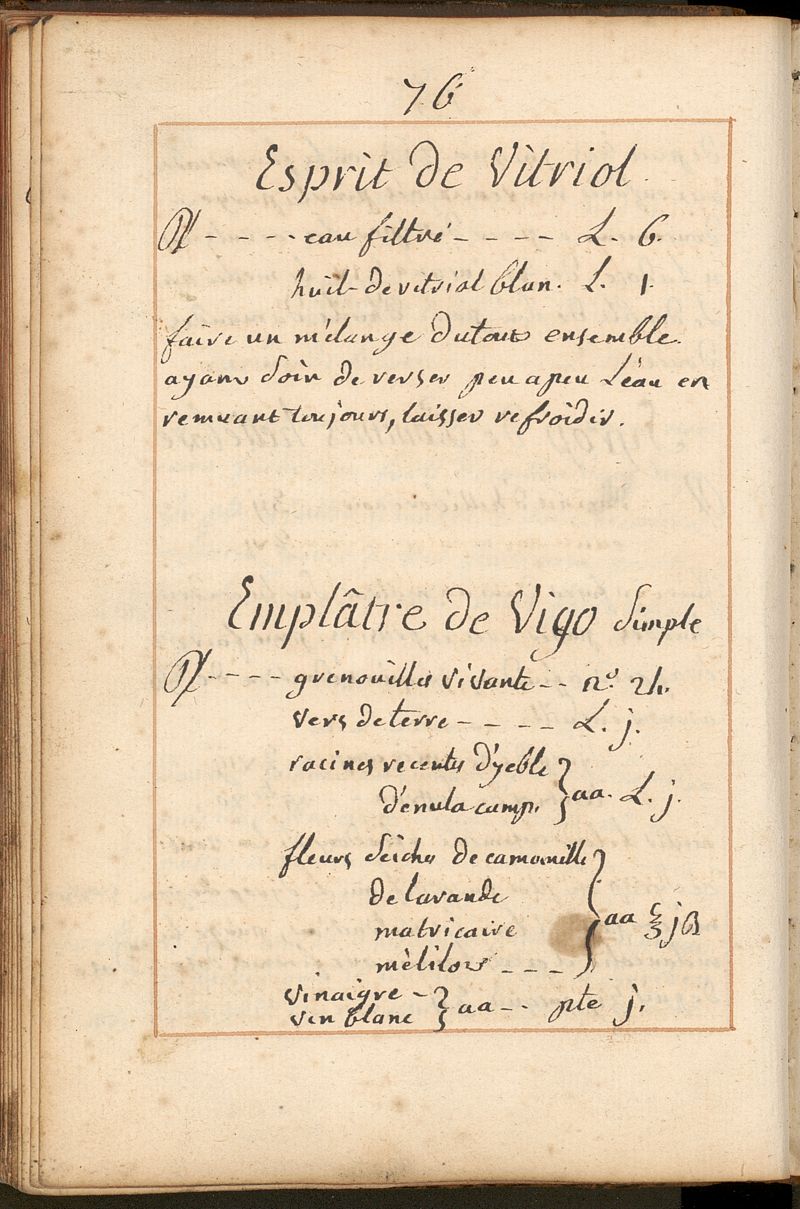 76
Esprit de Vitriol
℞ - - - - eau filtré - - - - L. 6.
huil- de vitriol blan. L. 1.
faire un mélange dutout ensemble.
ayant soin de verser peu a peu l'eau en
remuant toujours, laisser refroidir.
Emplâtre de Vigo Simple
℞ - - - - grenouilles vivante - - n.º 24.
vers de terre - - - - L. j.
racines recentes d'yeble
d'enula camp. } aa. L. j.
fleurs seiches de camomille
de lavande
matricaire } aa ℥ jß
mélilot - - -
vinaigre -
vin blanc } aa - - pte j.